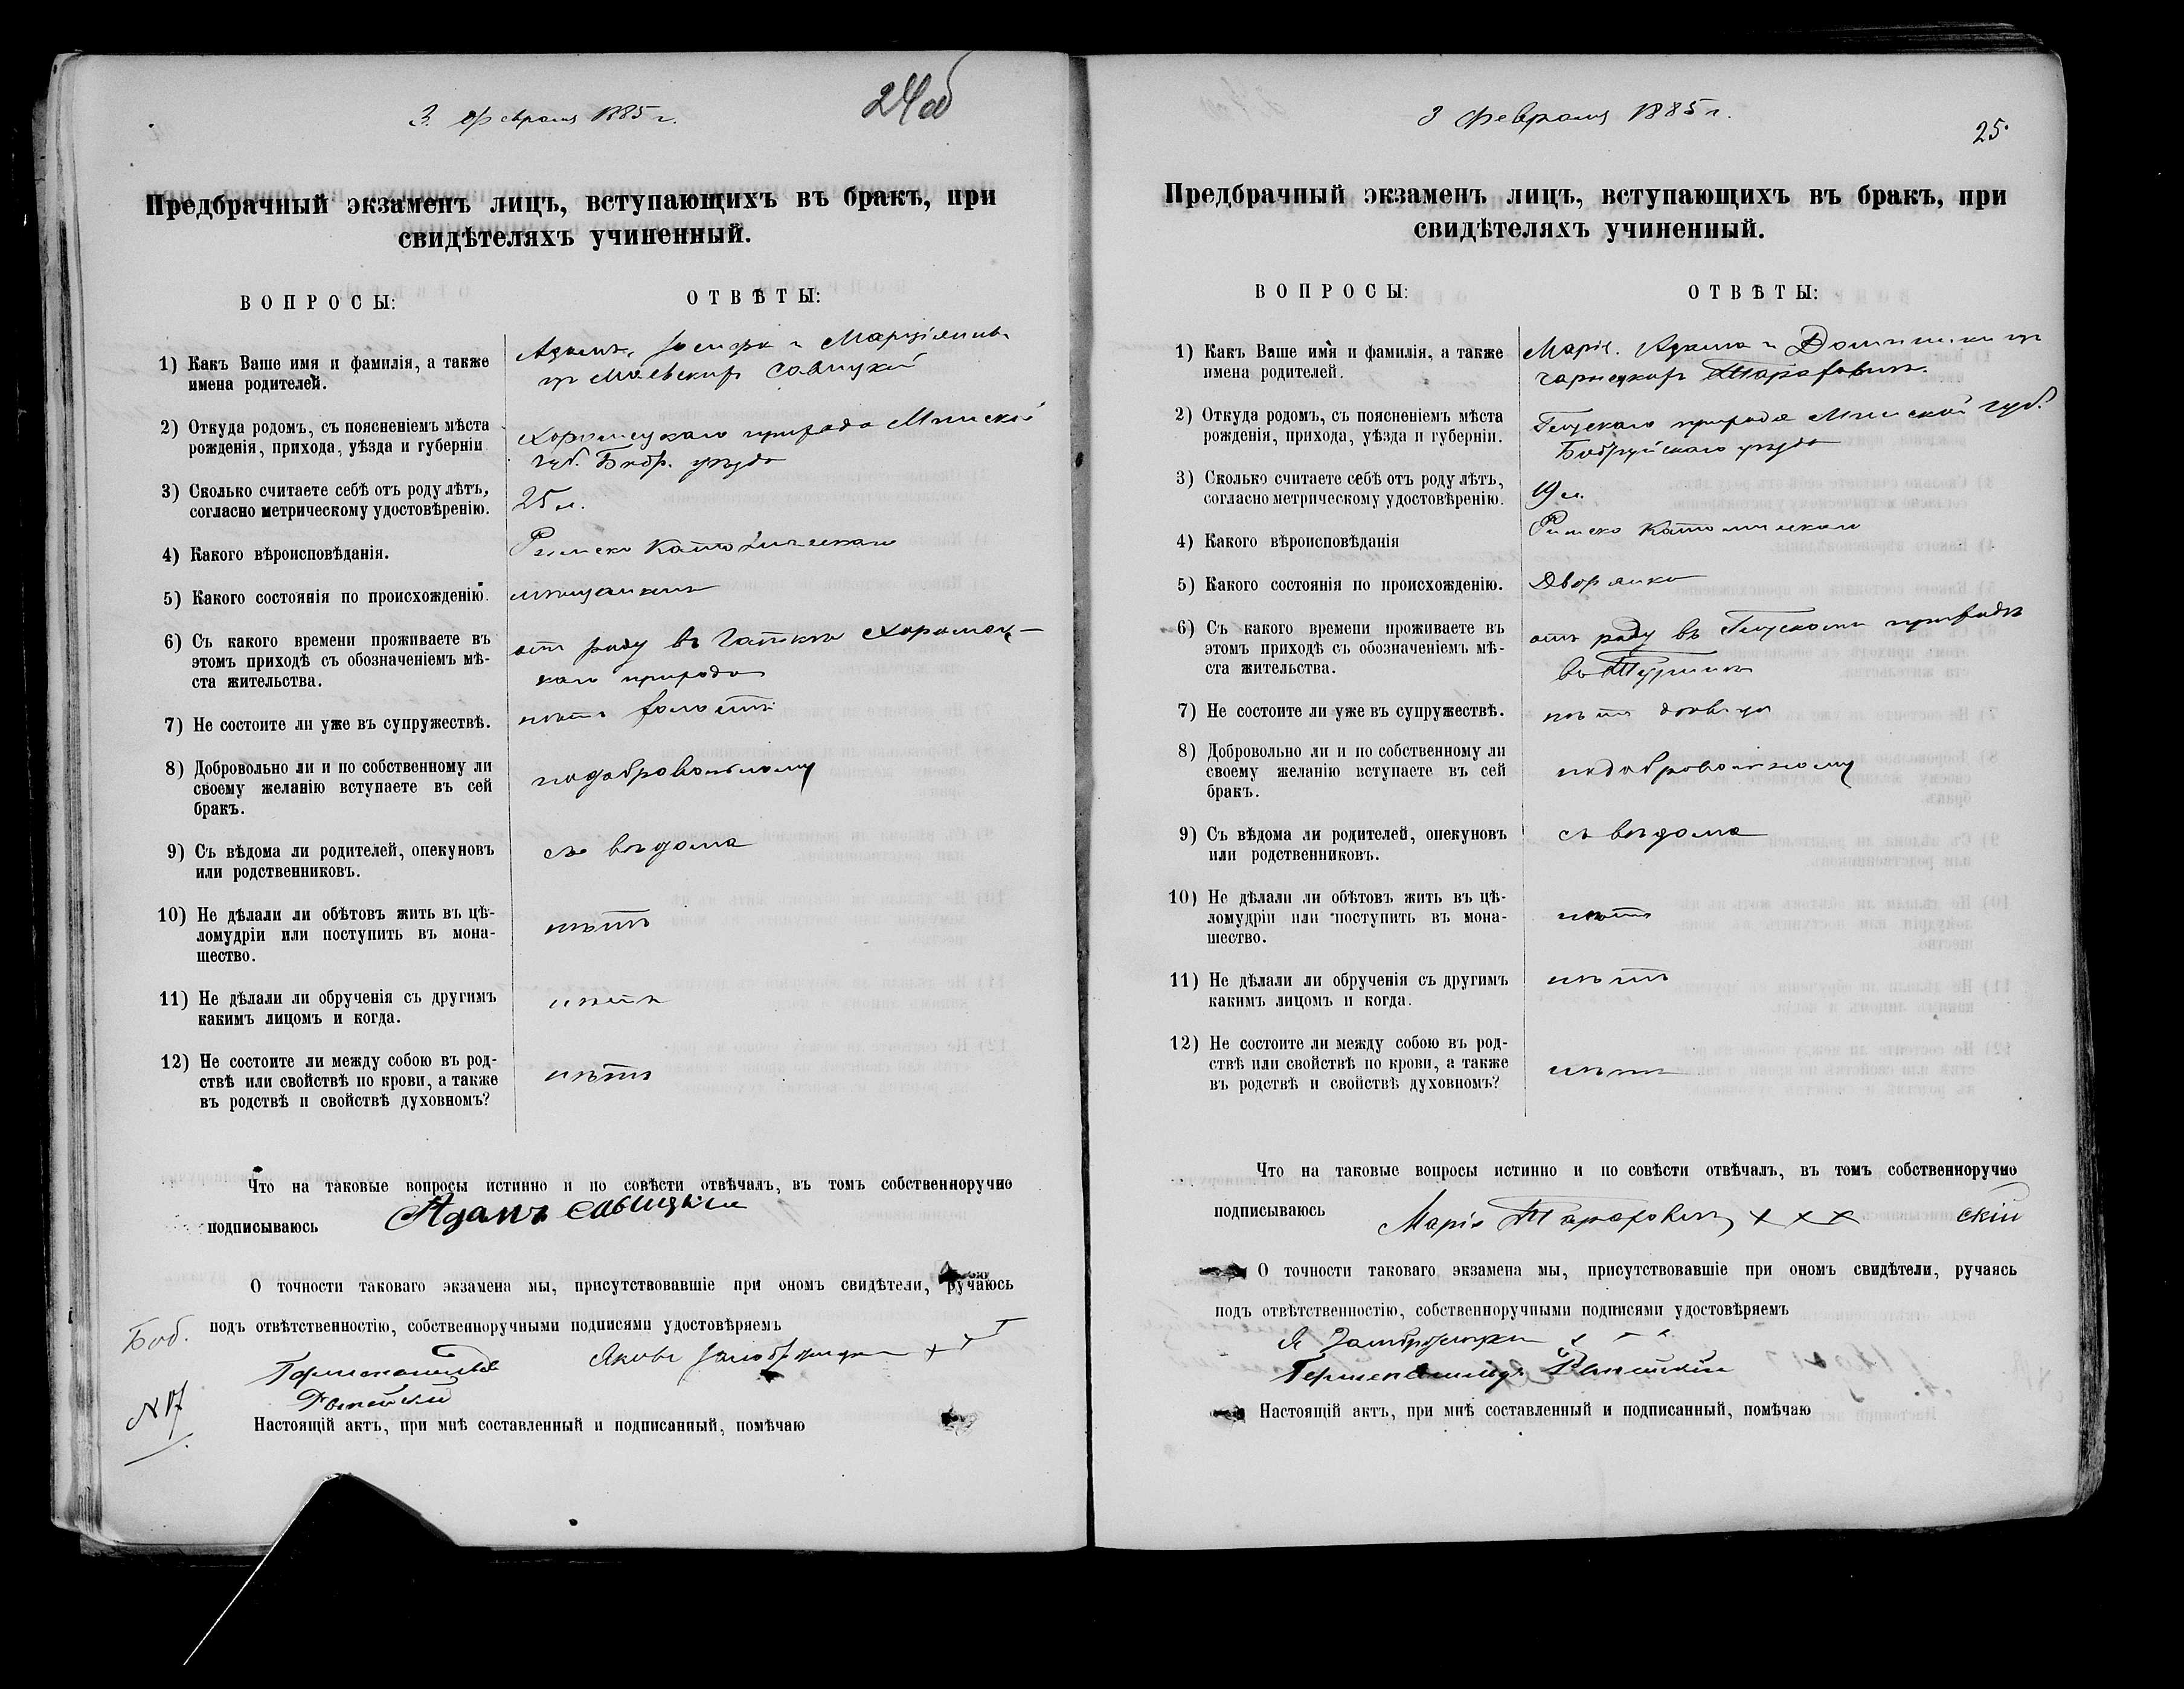 3. Февраля 1885 г.
24об
Предбрачный экзаменъ лицъ, вступающихъ въ бракъ, при
свидѣтеляхъ учиненный.
ВОПРОСЫ:
ОТВѢТЫ:
1) Какъ Ваше имя и фамилія, а также
имена родителей.
Адамъ, Іосифа и
Савицкій
2) Откуда родомъ, съ поясненіемъ мѣста
рожденія, прихода, уѣзда и губерніи
прихода Минской
губ. Бобр. уѣзда
3) Сколько считаете себѣ отъ роду лѣтъ,
согласно метрическому удостовѣренію.
25 л.
4) Какого вѣроисповѣданія.
Римско Католическаго
5) Какого состоянія по происхожденію.
мѣщанинъ
6) Съ какого времени проживаете въ
этомъ приходѣ съ обозначеніемъ мѣ-
ста жительства.
отъ роду въ
прихода
7) Не состоите ли уже въ супружествѣ.
нѣтъ холостъ
8) Добровольно ли и по собственному ли
своему желанію вступаете въ сей
бракъ.
подобровольному
9) Съ вѣдома ли родителей, опекуновъ
или родственниковъ.
съ вѣдома
10) Не дѣлали ли обѣтовъ жить въ цѣ-
ломудріи или поступить въ мона-
шество.
нѣтъ
11) Не дѣлали ли обрученія съ другимъ
какимъ лицомъ и когда.
нѣтъ
12) Не состоите ли между собою въ род-
ствѣ или свойствѣ по крови, а также
въ родствѣ и свойствѣ духовномъ?
нѣтъ
Что на таковые вопросы истинно и по совѣсти отвѣчалъ, въ томъ собственноручно
подписываюсь
Адамъ Савицкій
О точности таковаго экзамена мы, присутствовавшіе при ономъ свидѣтели, ручаюсь
подъ отвѣтственностію, собственноручными подписями удостовѣряемъ
Боб.
Яковъ
N 17
Настоящій актъ, при мнѣ составленный и подписанный, помѣчаю
3 Февраля 1885 г.
25.
Предбрачный экзаменъ лицъ, вступающихъ въ бракъ, при
свидѣтеляхъ учиненный.
ВОПРОСЫ:
ОТВѢТЫ:
1) Какъ Ваше имя и фамилія, а также
имена родителей.
Марія. Адама и
2) Откуда родомъ, съ поясненіемъ мѣста
рожденія, прихода, уѣзда и губерніи.
Глускаго прихода Минской губ.
Бобруйскаго уѣзда
3) Сколько считаете себѣ отъ роду лѣтъ,
согласно метрическому удостовѣренію.
19 л.
4) Какого вѣроисповѣданія
Римско Католическаго
5) Какого состоянія по происхожденію.
Дворянка
6) Съ какого времени проживаете въ
этомъ приходѣ съ обозначеніемъ мѣ-
ста жительства.
отъ роду въ Глускомъ приходѣ
7) Не состоите ли уже въ супружествѣ.
нѣтъ дѣвица
8) Добровольно ли и по собственному ли
своему желанію вступаете въ сей
бракъ.
подобровольному
9) Съ вѣдома ли родителей, опекуновъ
или родственниковъ.
съ вѣдома
10) Не дѣлали ли обѣтовъ жить въ цѣ-
ломудріи или поступить въ мона-
шество.
нѣтъ
11) Не дѣлали ли обрученія съ другимъ
какимъ лицомъ и когда.
нѣтъ
12) Не состоите ли между собою въ род-
ствѣ или свойствѣ по крови, а также
въ родствѣ и свойствѣ духовномъ?
нѣтъ
Что на таковые вопросы истинно и по совѣсти отвѣчалъ, въ томъ собственноручно
подписываюсь
Марія + + + скій
О точности таковаго экзамена мы, присутствовавшіе при ономъ свидѣтели, ручаясь
подъ отвѣтственностію, собственноручными подписями удостовѣряемъ
Настоящій актъ, при мнѣ составленный и подписанный, помѣчаю